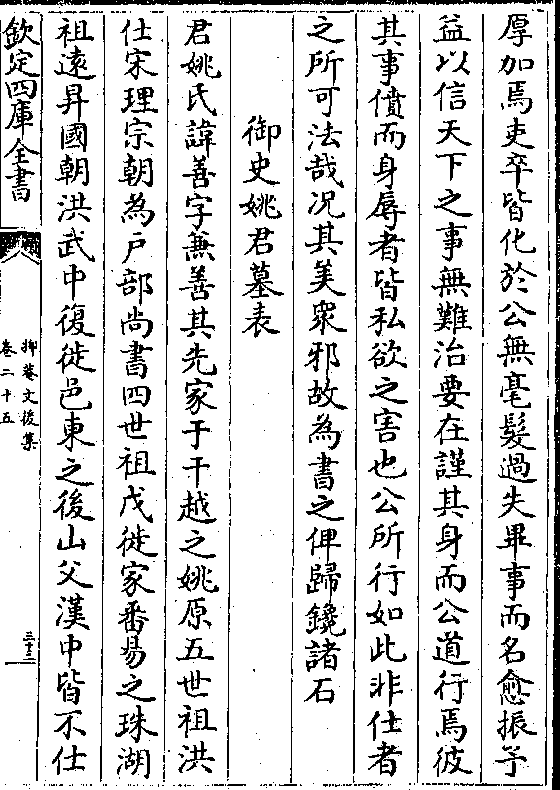 厚加焉吏卒皆化於公無毫髮過失畢事而名愈振予
益以信天下之事無難治要在謹其身而公道行焉彼
其事僨而身辱者皆私欲之害也公所行如此非仕者
之所可法哉况其美衆邪故為書之俾歸鑱諸石
御史姚君墓表
君姚氏諱善字兼善其先家于干越之姚原五世祖洪
仕宋理宗朝為戶部尚書四世祖戊徙家番昜之珠湖
祖遠昇國朝洪武中復徙邑東之後山父漢中皆不仕
欽定四庫全書
抑菴文後集
卷二十五
三十三